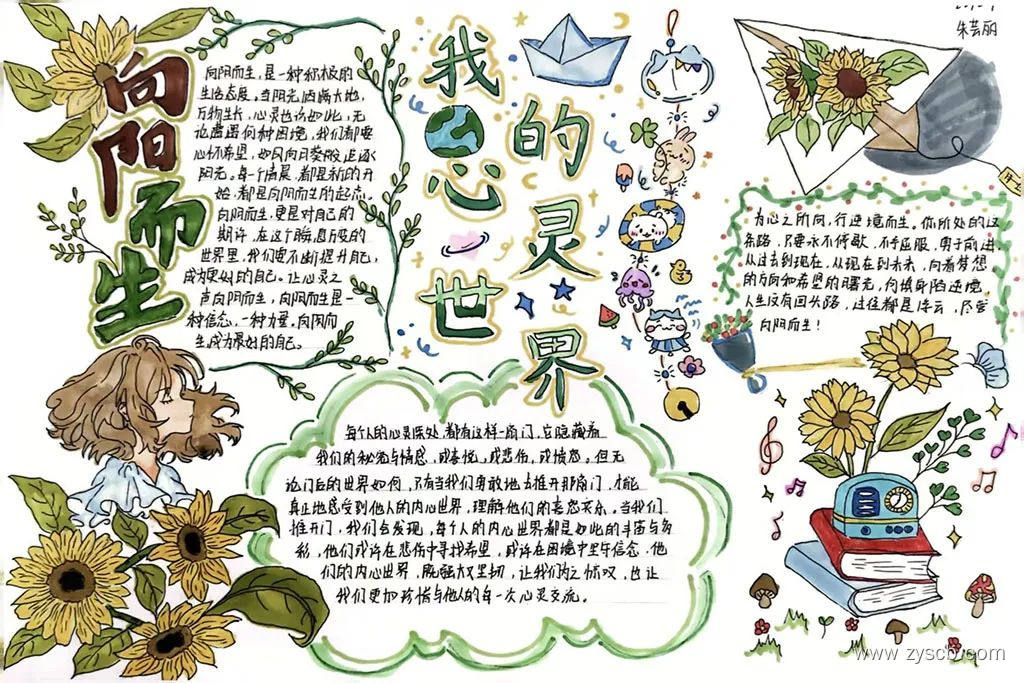 朱芸丽
向阳而生
向阳而生，是一种积极的
生活态度。当阳光洒满大地，
万物生长，心灵也该如此，无
论遭遇何种困境，我们都要
心怀希望，如同向日葵般追逐
阳光。每个清晨，都是新的开
始，都是向阳而生的起点。
向阳而生，更是对自己的
期许，在这个瞬息万变的
世界里，我们要不断提升自己，
成为更好的自己。让心灵之
声向阳而生，向阳而生是一
种信念，一种力量，向阳而
生成为最好的自己。
我心
世
的
灵
界
为心之所向，行逆境而生。你所处的这
条路，只要永不停歇，不守屈服，勇于前进
从过去到现在，从现在到未来，向着梦想
的方向和希望的曙光，向横身陷逆境，
人生没有回头路，过往都是浮云，尽管
向阳而生！
每个人的心灵深处，都有这样一扇门，它隐藏着
我们的秘密与情感，或喜悦，或悲伤，或愤怒。但无
论门后的世界如何，只有当我们勇敢地去推开那扇门，才能
真正地感受到他人的内心世界，理解他们的喜怒哀乐。当我们
推开门，我们会发现，每个人的内心世界都是如此的丰富与多
彩，他们或许在悲伤中寻找希望，或许在困境中坚守信念，他
们的内心世界，既强大又坚韧，让我们为之惊叹，也让
我们更加珍惜与他人的每一次心灵交流。
www.zyscb.com